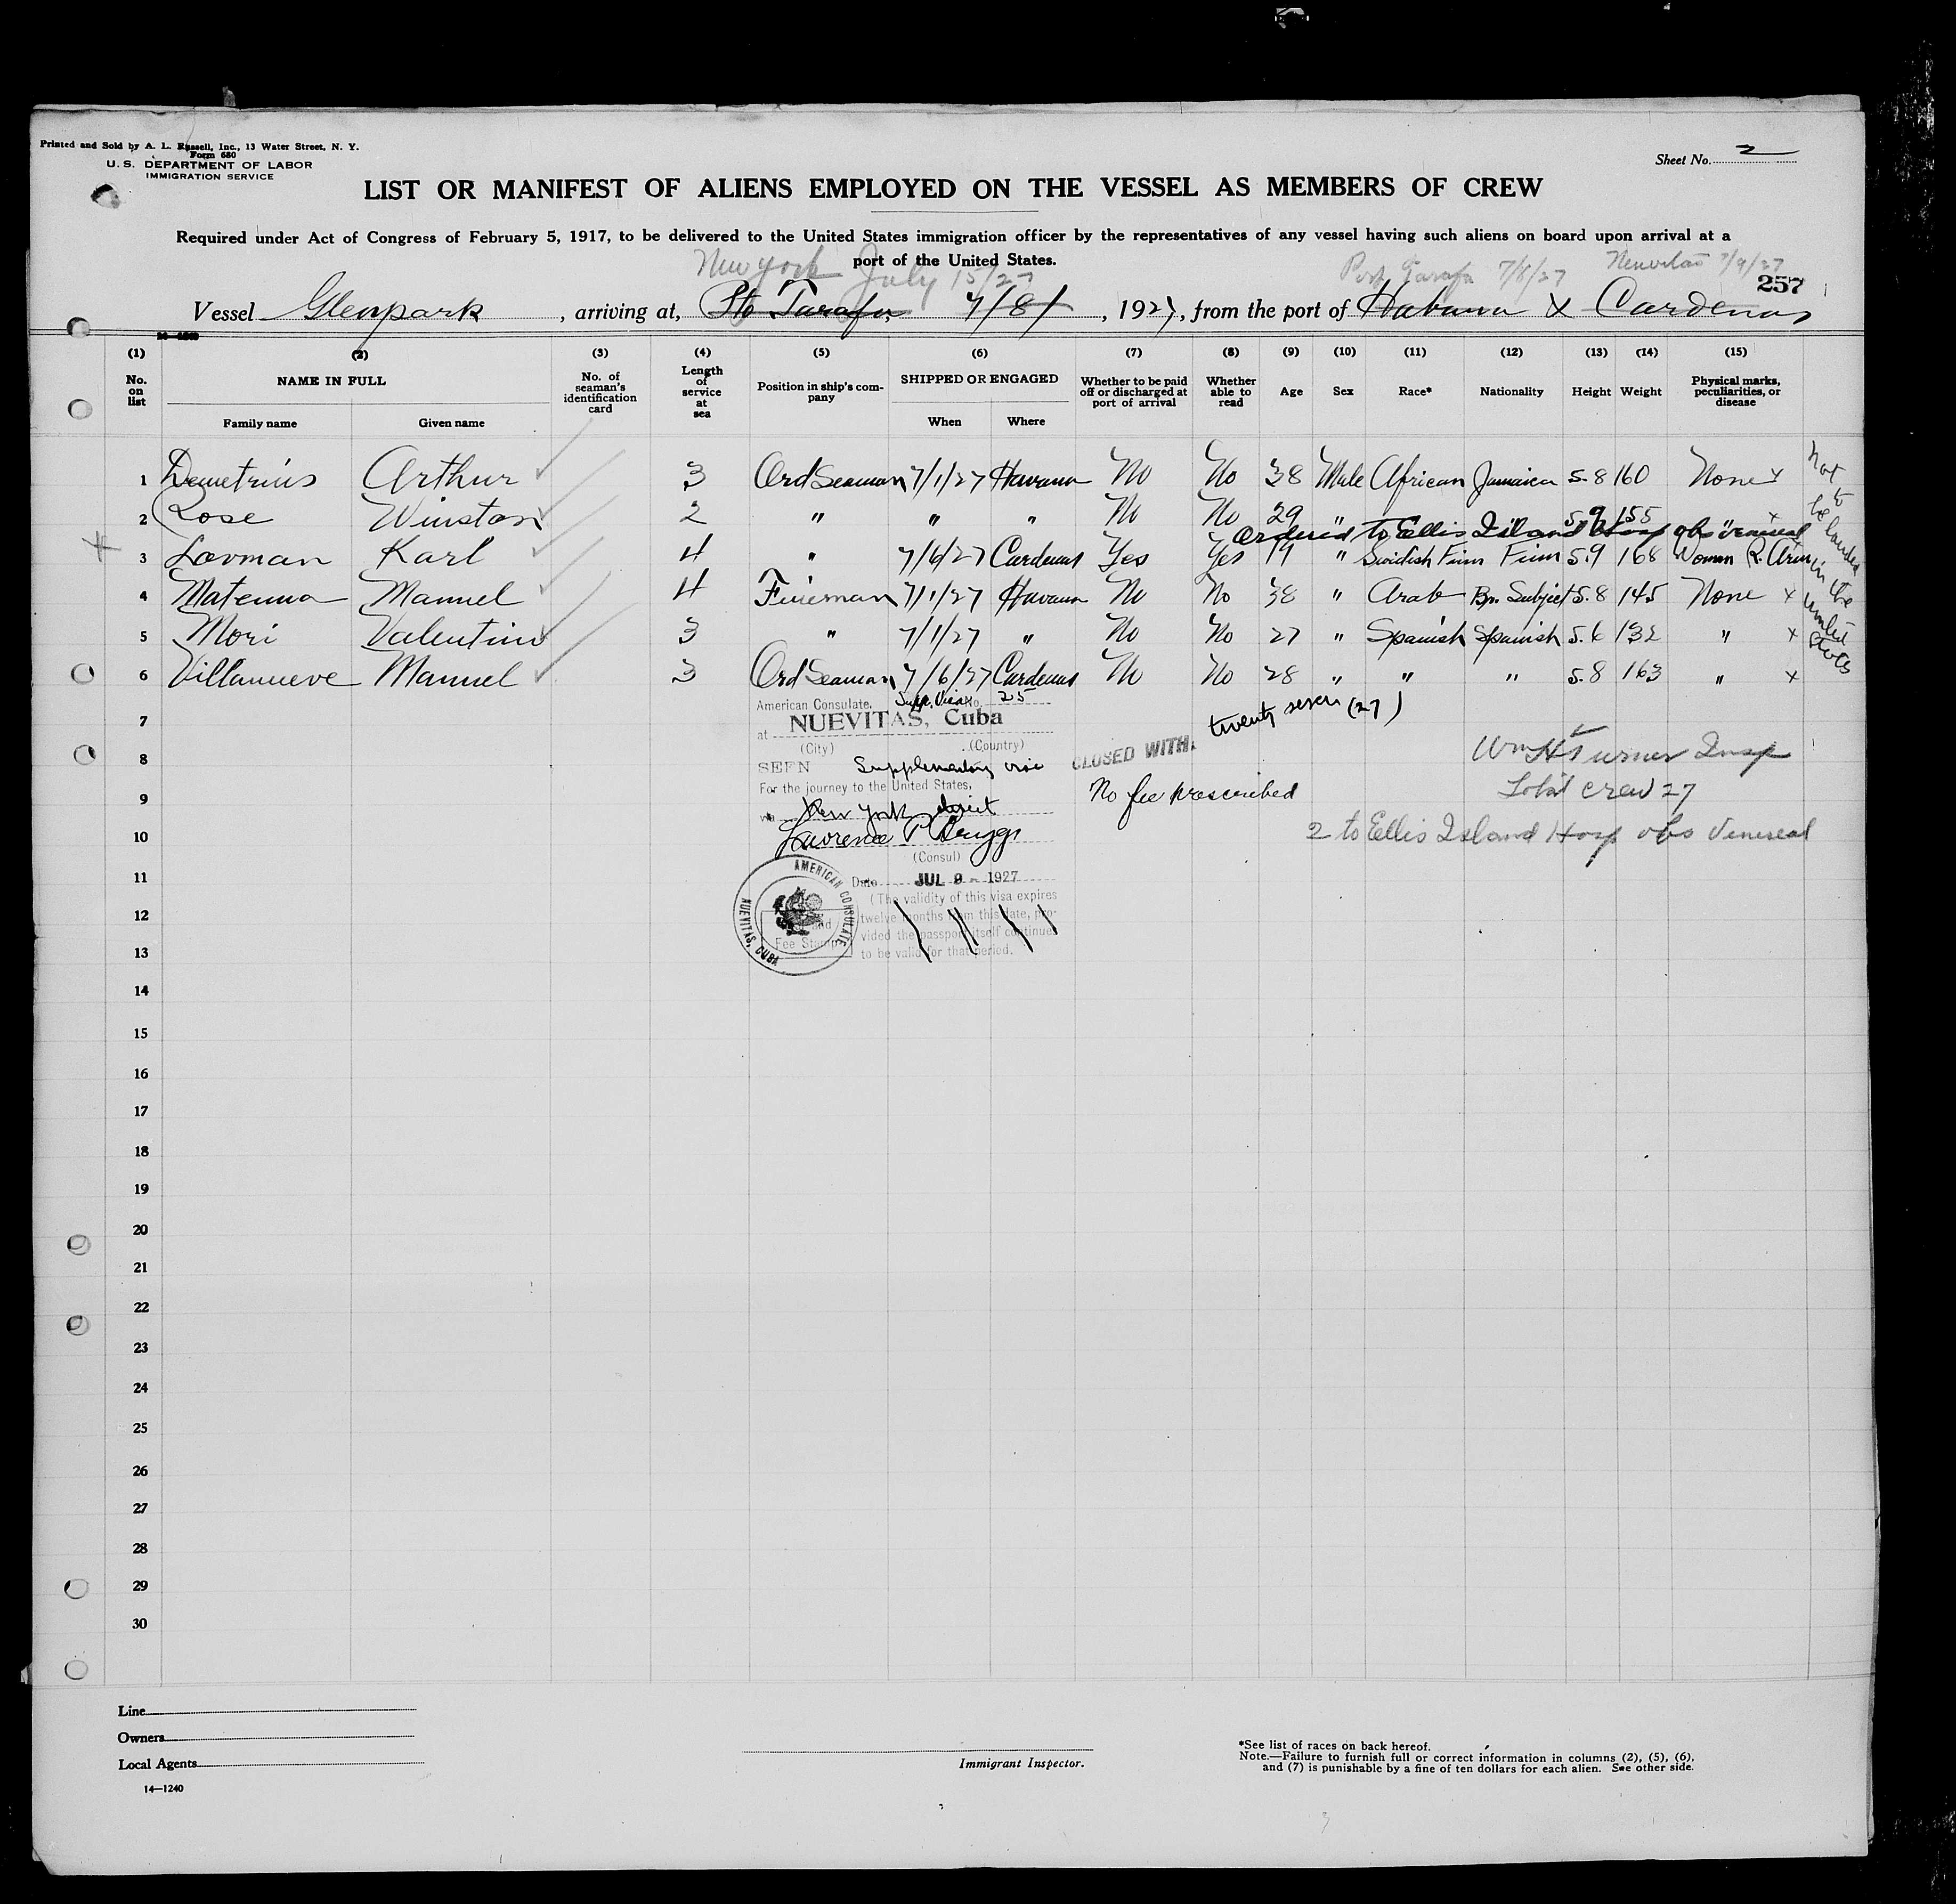 Printed and Sold by A. L. Russell, Inc., 13 Water Street, N. Y.
Form 680
U. S. DEPARTMENT OF LABOR
IMMIGRATION SERVICE
Sheet No. 2
LIST OR MANIFEST OF ALIENS EMPLOYED ON THE VESSEL AS MEMBERS OF CREW
Required under Act of Congress of February 5, 1917, to be delivered to the United States immigration officer by the representatives of any vessel having such aliens on board upon arrival at a
port of the United States.
New York July 15/27 Port Tarafa 7/8/27 Neuvitas 7/9/27
257
Vessel Glenpark, arriving at, Pto Tarafa, 7/8/, 1927, from the port of Habana & Cardenas
(1) (2) (3) (4) (5) (6) (7) (8) (9) (10) (11) (12) (13) (14) (15)
No. on list NAME IN FULL Family name Given name No. of seaman's identification card Length of service at sea Position in ship's company SHIPPED OR ENGAGED When Where Whether to be paid off or discharged at port of arrival Whether able to read Age Sex Race* Nationality Height Weight Physical marks, peculiarities, or disease
1 Demetrius Arthur 3 Ord Seaman 7/1/27 Havana No No 38 Male African Jamaica 5.8 160 None x
2 Rose Winston 2 " " " No No 29 " " " 5.9 155 " x
Ordered to Ellis Island Hosp obs venereal
3 Lovman Karl 4 " 7/6/27 Cardenas Yes Yes 19 " Swidish Finn Finn 5.9 168 Woman R. Arm
4 Matenna Manuel 4 Fireman 7/1/27 Havana No No 38 " Arab Br. Subject 5.8 145 None x
5 Mori Valentino 3 " 7/1/27 " No No 27 " Spanish Spanish 5.6 132 " x
6 Villanueve Manuel 3 Ord Seaman 7/6/27 Cardenas No No 28 " " " 5.8 163 " x
Not to be landed in the United States
7
8
9
10
11
12
13
14
15
16
17
18
19
20
21
22
23
24
25
26
27
28
29
30
American Consulate, Supp. Visa No. 25
at NUEVITAS, Cuba
(City) (Country)
SEEN Supplementary visa
For the journey to the United States,
via New York direct
Lawrence P. Briggs
(Consul)
Date JUL 9 - 1927
(The validity of this visa expires
twelve months from this date, pro-
vided the passport itself continues
to be valid for that period.
AMERICAN CONSULATE, NUEVITAS, CUBA
Fee Stamp
CLOSED WITH
twenty seven (27)
No fee prescribed
Wm H Turner Insp
Total crew 27
2 to Ellis Island Hosp obs Venereal
Line
Owners
Local Agents
14—1240
Immigrant Inspector.
*See list of races on back hereof.
Note.—Failure to furnish full or correct information in columns (2), (5), (6),
and (7) is punishable by a fine of ten dollars for each alien. See other side.